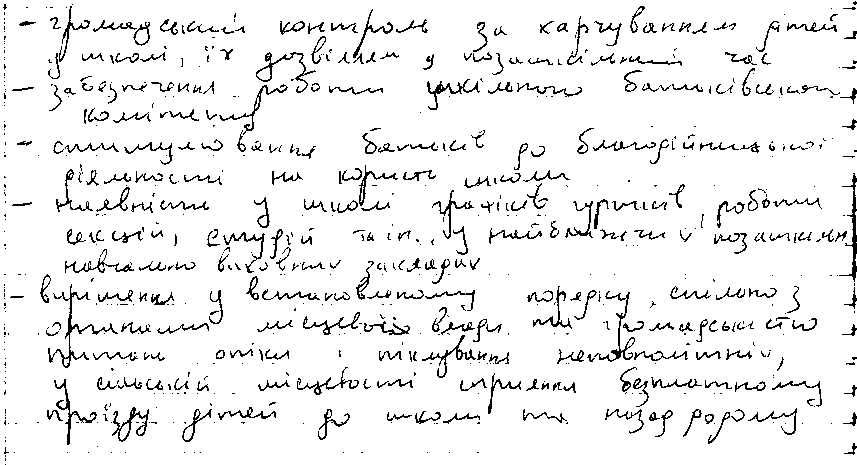 - громадський контроль за харчуванням дітей
у школі, їх дозвіллям у позашкільний час
- забезпечення роботи шкільного батьківського
комітету
- стимулювання батьків до благодійницької
діяльності на користь школи
- наявність у школі графіків гуртків, роботи
секцій, студій та ін. у найближчих позашкільн
навчально виховних закладах
- вирішення у встановленому порядку, спільно з
органами місцевої влади та громадськістю
питань опіки і піклування неповнолітніх,
у сільській місцевості сприяння безплатному
проїзду дітей до школи та позад додому